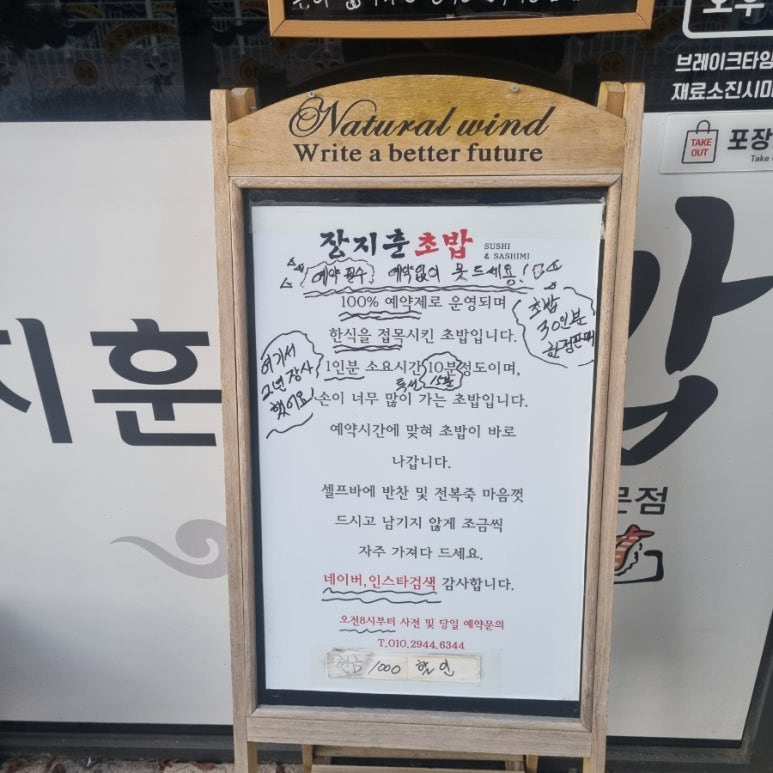 오후
브레이크타임
재료소진시마
TAKE OUT
포장
Take
Natural wind
Write a better future
장지훈초밥 SUSHI & SASHIMI
예약필수, 예약없이 못드세용!
100% 예약제로 운영되며
초밥
30인분
한정판매
한식을 접목시킨 초밥입니다.
여기서
2년 장사
했어요
1인분 소요시간 10분정도이며,
특선 15분
손이 너무 많이 가는 초밥입니다.
예약시간에 맞혀 초밥이 바로
나갑니다.
셀프바에 반찬 및 전복죽 마음껏
드시고 남기지 않게 조금씩
자주 가져다 드세요.
네이버,인스타검색 감사합니다.
오전8시부터 사전 및 당일 예약문의
T.010.2944.6344
현금 1000 할인
지훈
밥
문점